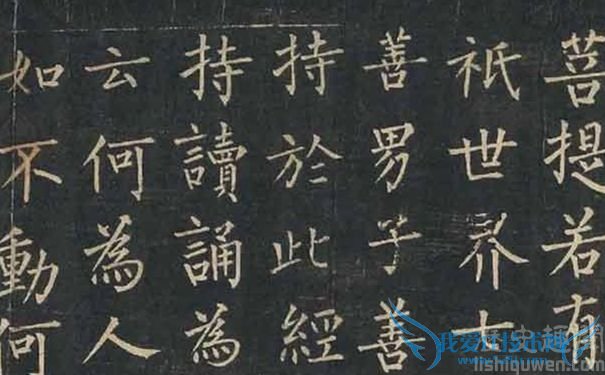 菩提若有
祇世界七
善男子善
持於此經
持讀誦為
云何為人
如不動何
lishiquwen.com